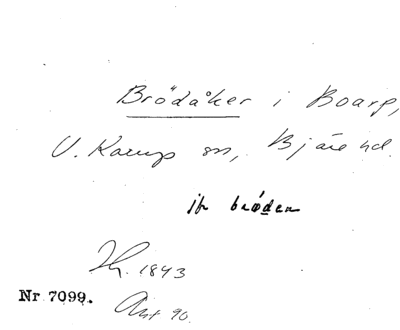 Brödåker i Boarp,
V. Karup sn, Bjäre hd.
jfr bröden
1843
Nr 7099.
Ant 90.